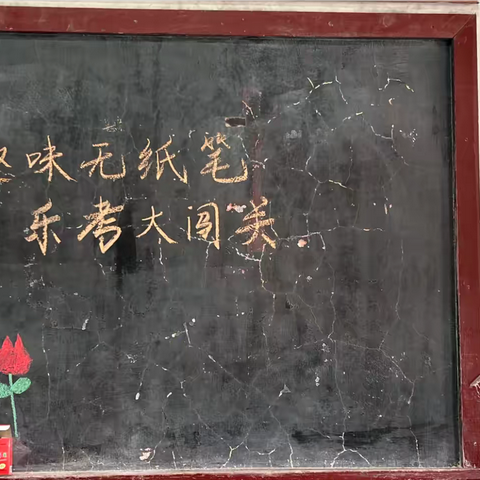 味无纸笔
乐考大闯关